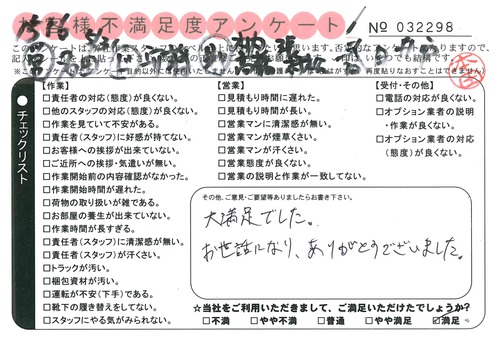 お客様不満足度アンケート
No 032298
【作業】
□責任者の対応(態度)が良くない。
□他のスタッフの対応(態度)が良くない。
□作業を見ていて不安がある。
□責任者(スタッフ)に好感が持てない。
□お客様への挨拶が出来ていない。
□ご近所への挨拶・気遣いが無い。
□作業開始前の内容確認がなかった。
□作業開始時間が遅れた。
□荷物の取り扱いが雑である。
□お部屋の養生が出来ていない。
□作業時間が長すぎる。
□責任者(スタッフ)に清潔感が無い。
□責任者(スタッフ)が汗くさい。
□トラックが汚い。
□梱包資材が汚い。
□運転が不安(下手)である。
□靴下の履き替えをしてない。
□スタッフにやる気がみられない。
【営業】
□見積もり時間に遅れた。
□見積もり時間が長い。
□営業マンに清潔感が無い。
□営業マンが煙草くさい。
□営業マンが汗くさい。
□営業態度が良くない。
□営業の説明と作業が一致してない。
【受付・その他】
□電話の対応が良くない。
□オプション業者の説明
・作業が良くない。
□オプション業者の対応
(態度)が良くない。
チェックリスト
その他、ご意見・ご要望等ありましたらお書き下さい。
大満足でした。
お世話になり、ありがとうございました。
☆当社をご利用いただきまして、ご満足いただけたでしょうか?
□不満 □やや不満 □普通 □やや満足 ☑満足